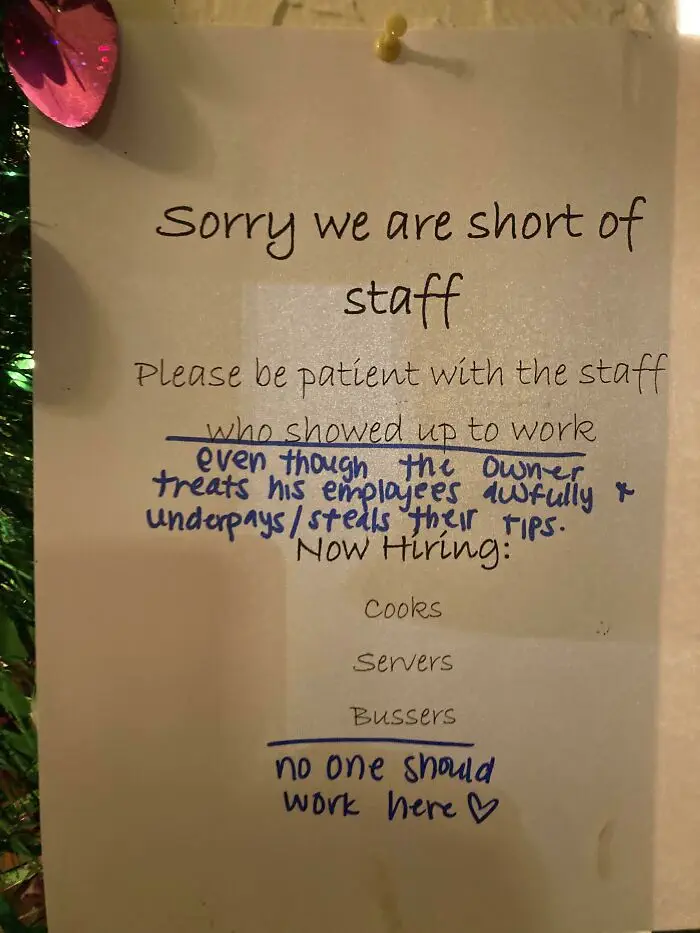 Sorry we are short of
staff
Please be patient with the staff
who showed up to work
even though the owner
treats his employees awfully &
underpays/steals their tips.
Now Hiring:
Cooks
Servers
Bussers
no one should
work here ♡